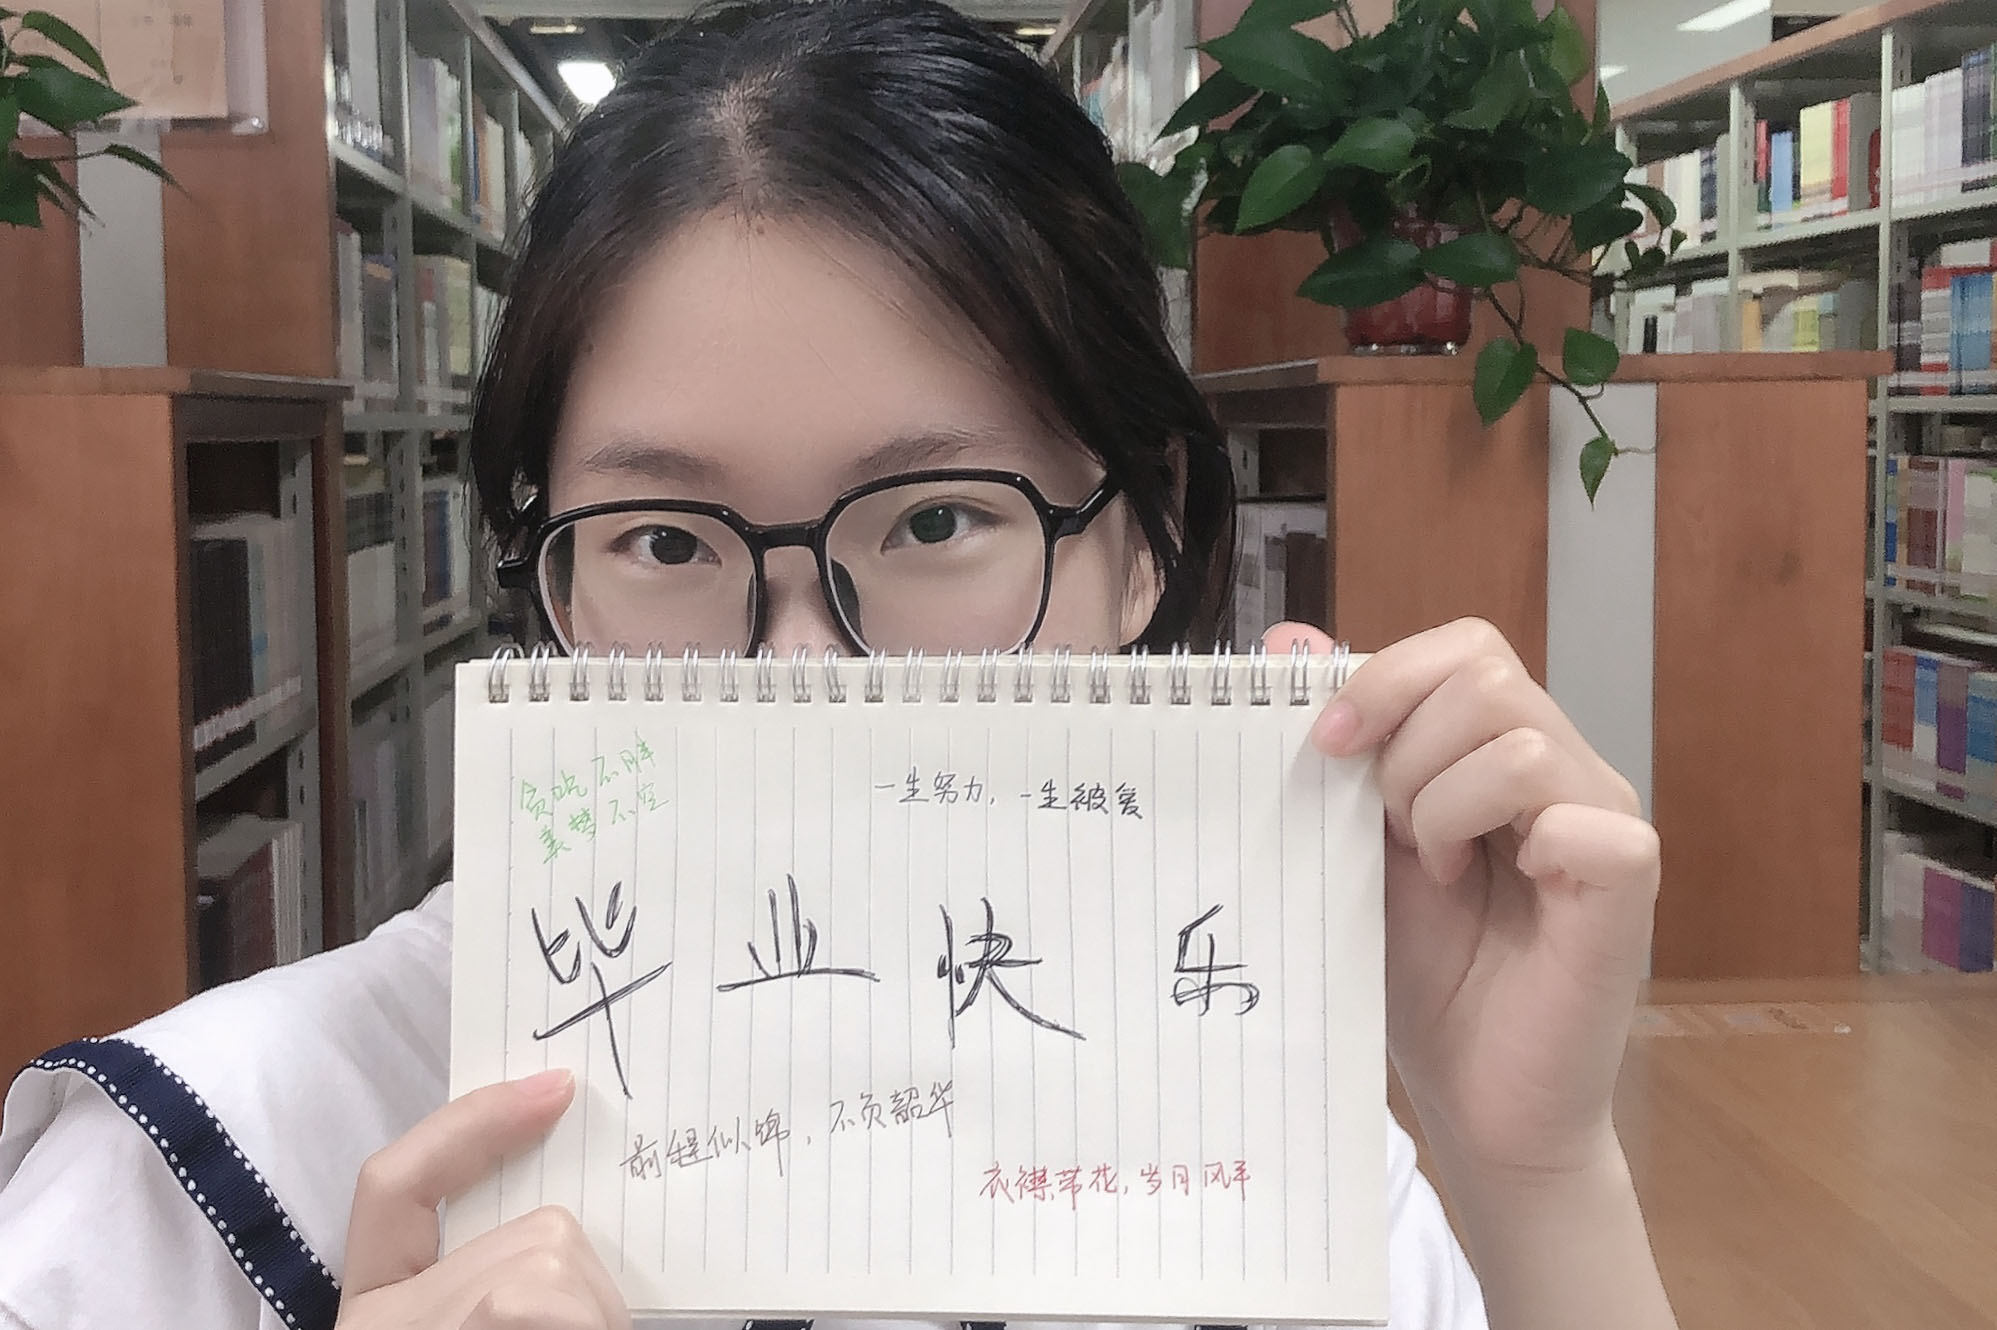 贪吃不胖
美梦不空
一生努力，一生被爱
毕业快乐
前程似锦，不负韶华
衣襟带花，岁月风平